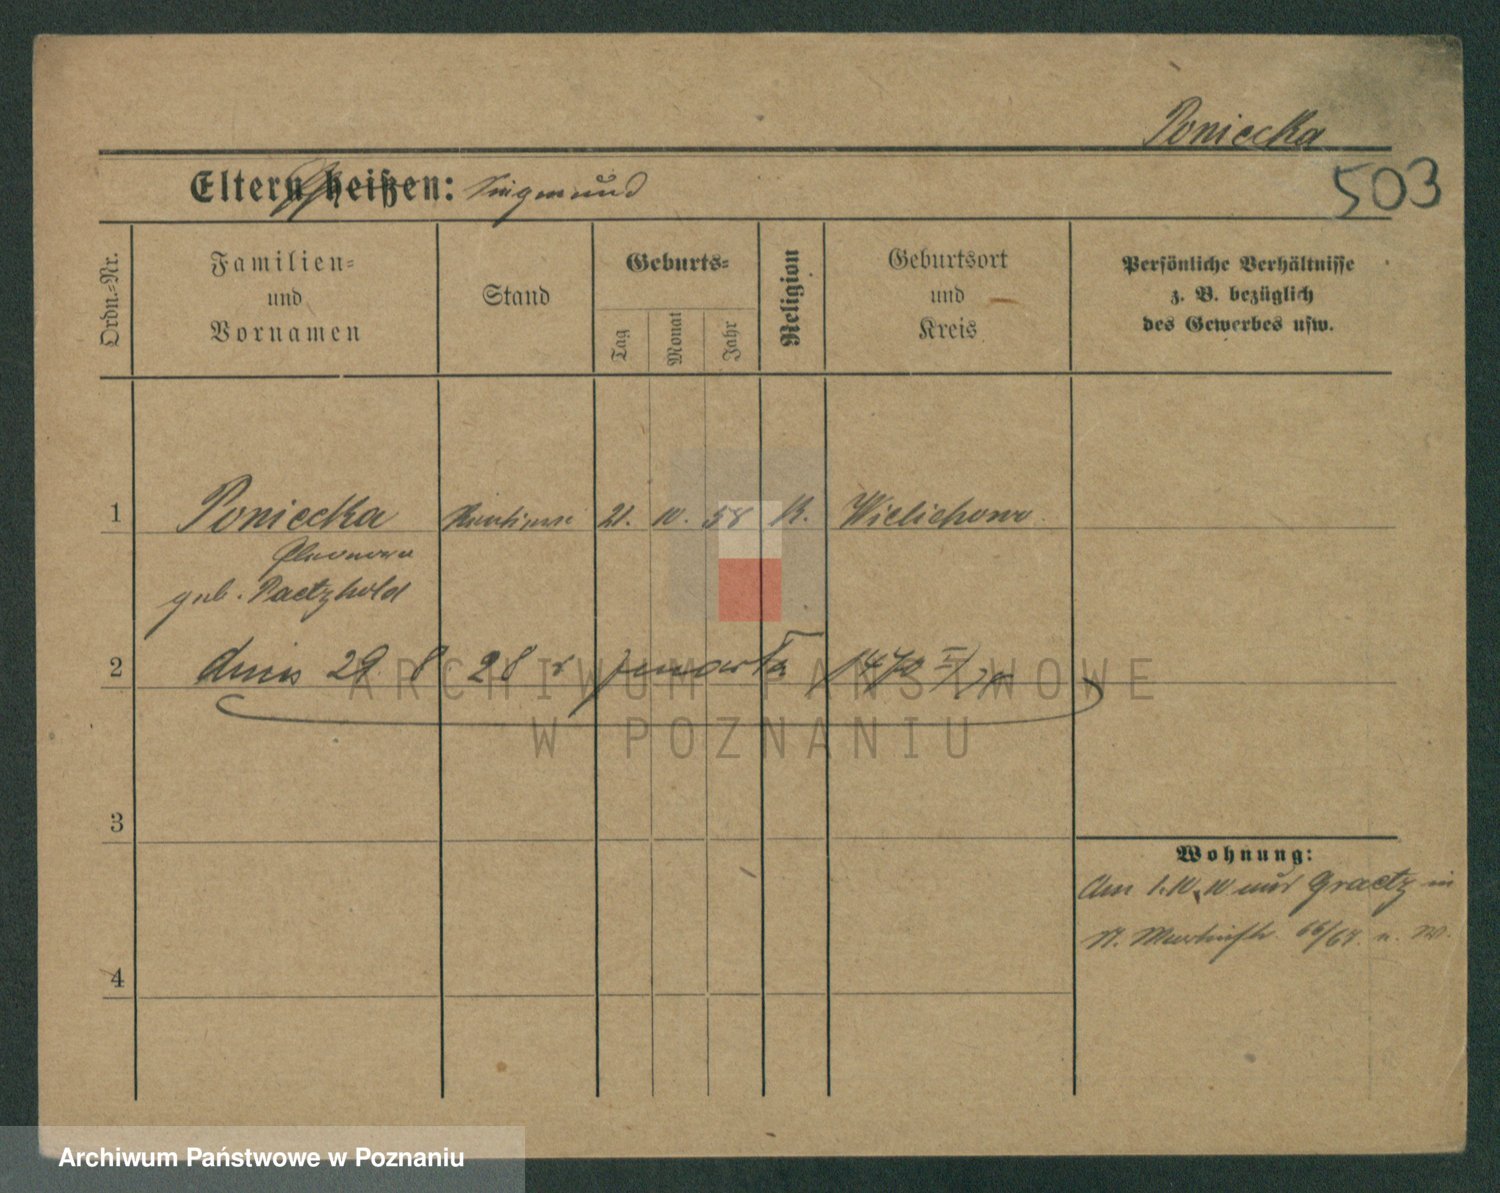 Poniecka
503
Eltern heißen: Siegmund
Ordn.-Nr.
Familien-
und
Vornamen
Stand
Geburts-
Tag
Monat
Jahr
Religion
Geburtsort
und
Kreis
Persönliche Verhältnisse
z. B. bezüglich
des Gewerbes usw.
1 Poniecka 21. 10. 58 K. Wielichowo
Eleonora
geb. Paetzhold
2 dnia 29 8 28 r zmarła
3
Wohnung:
Am 1.10.10 aus Graetz in
66/67.
4
ARCHIWUM PAŃSTWOWE
W POZNANIU
Archiwum Państwowe w Poznaniu